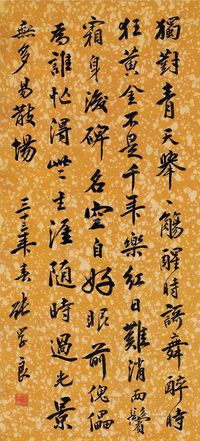 獨對青天舉一觴醒時謌舞醉時
狂黃金不是千年樂紅日難消兩鬢
霜身後碑名空自好眼前傀儡
為誰忙得些生涯隨時過光景
無多易散場
三十三年春 張学良